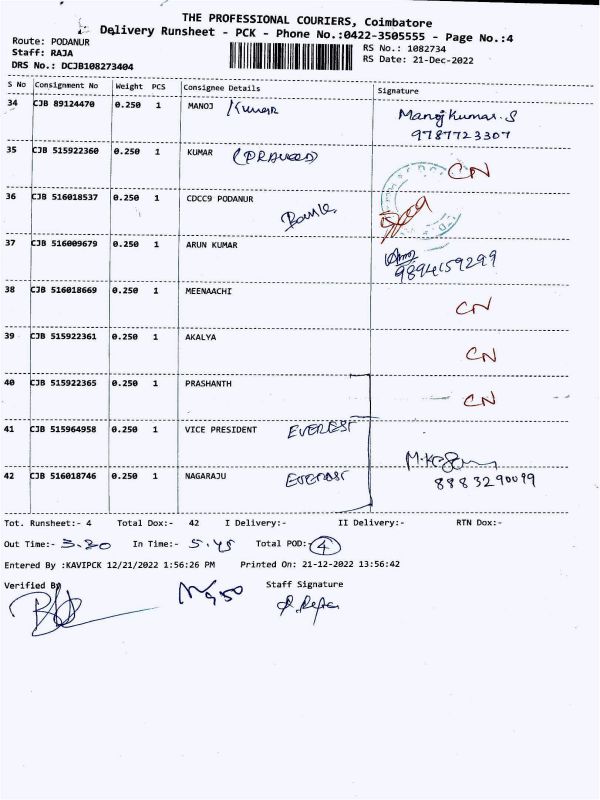 THE PROFESSIONAL COURIERS, Coimbatore
Delivery Runsheet - PCK - Phone No.:0422-3505555 - Page No.:4
Route: PODANUR
RS No.: 1082734
Staff: RAJA
RS Date: 21-Dec-2022
DRS No.: DCJB108273404
S No Consignment No Weight PCS Consignee Details Signature
34 CJB 89124470 0.250 1 MANOJ Kumar Manoj Kumar. S
9787723307
35 CJB 515922360 0.250 1 KUMAR CN
36 CJB 516018537 0.250 1 CDCC9 PODANUR Bank
37 CJB 516009679 0.250 1 ARUN KUMAR
9894159299
38 CJB 516018669 0.250 1 MEENAACHI CN
39 CJB 515922361 0.250 1 AKALYA CN
40 CJB 515922365 0.250 1 PRASHANTH CN
41 CJB 515964958 0.250 1 VICE PRESIDENT EVEREST
42 CJB 516018746 0.250 1 NAGARAJU EVEREST
8883290099
Tot. Runsheet:- 4 Total Dox:- 42 I Delivery:- II Delivery:- RTN Dox:-
Out Time:- 3.30 In Time:- 5.45 Total POD:- 4
Entered By :KAVIPCK 12/21/2022 1:56:26 PM Printed On: 21-12-2022 13:56:42
Verified By Staff Signature